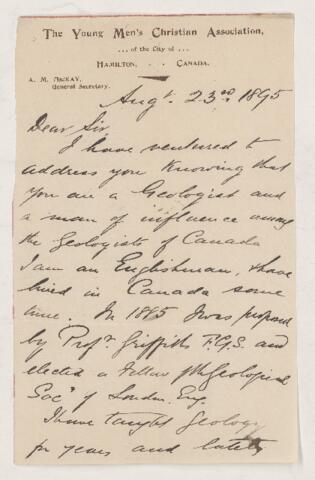 The Young Men's Christian Association,
... of the City of ...
HAMILTON, . . CANADA.
A. M. MacKAY,
General Secretary.
Augt. 23rd. 1895
Dear Sir,
I have ventured to
address you knowing that
you are a Geologist and
a man of influence among
the Geologists of Canada
I am an Englishman, & have
lived in Canada some
time. In 1885 I was proposed
by Profr. Griffiths F.G.S. and
elected a Fellow of the Geological
Socy of London. Eng.
I have taught Geology
for years and lately